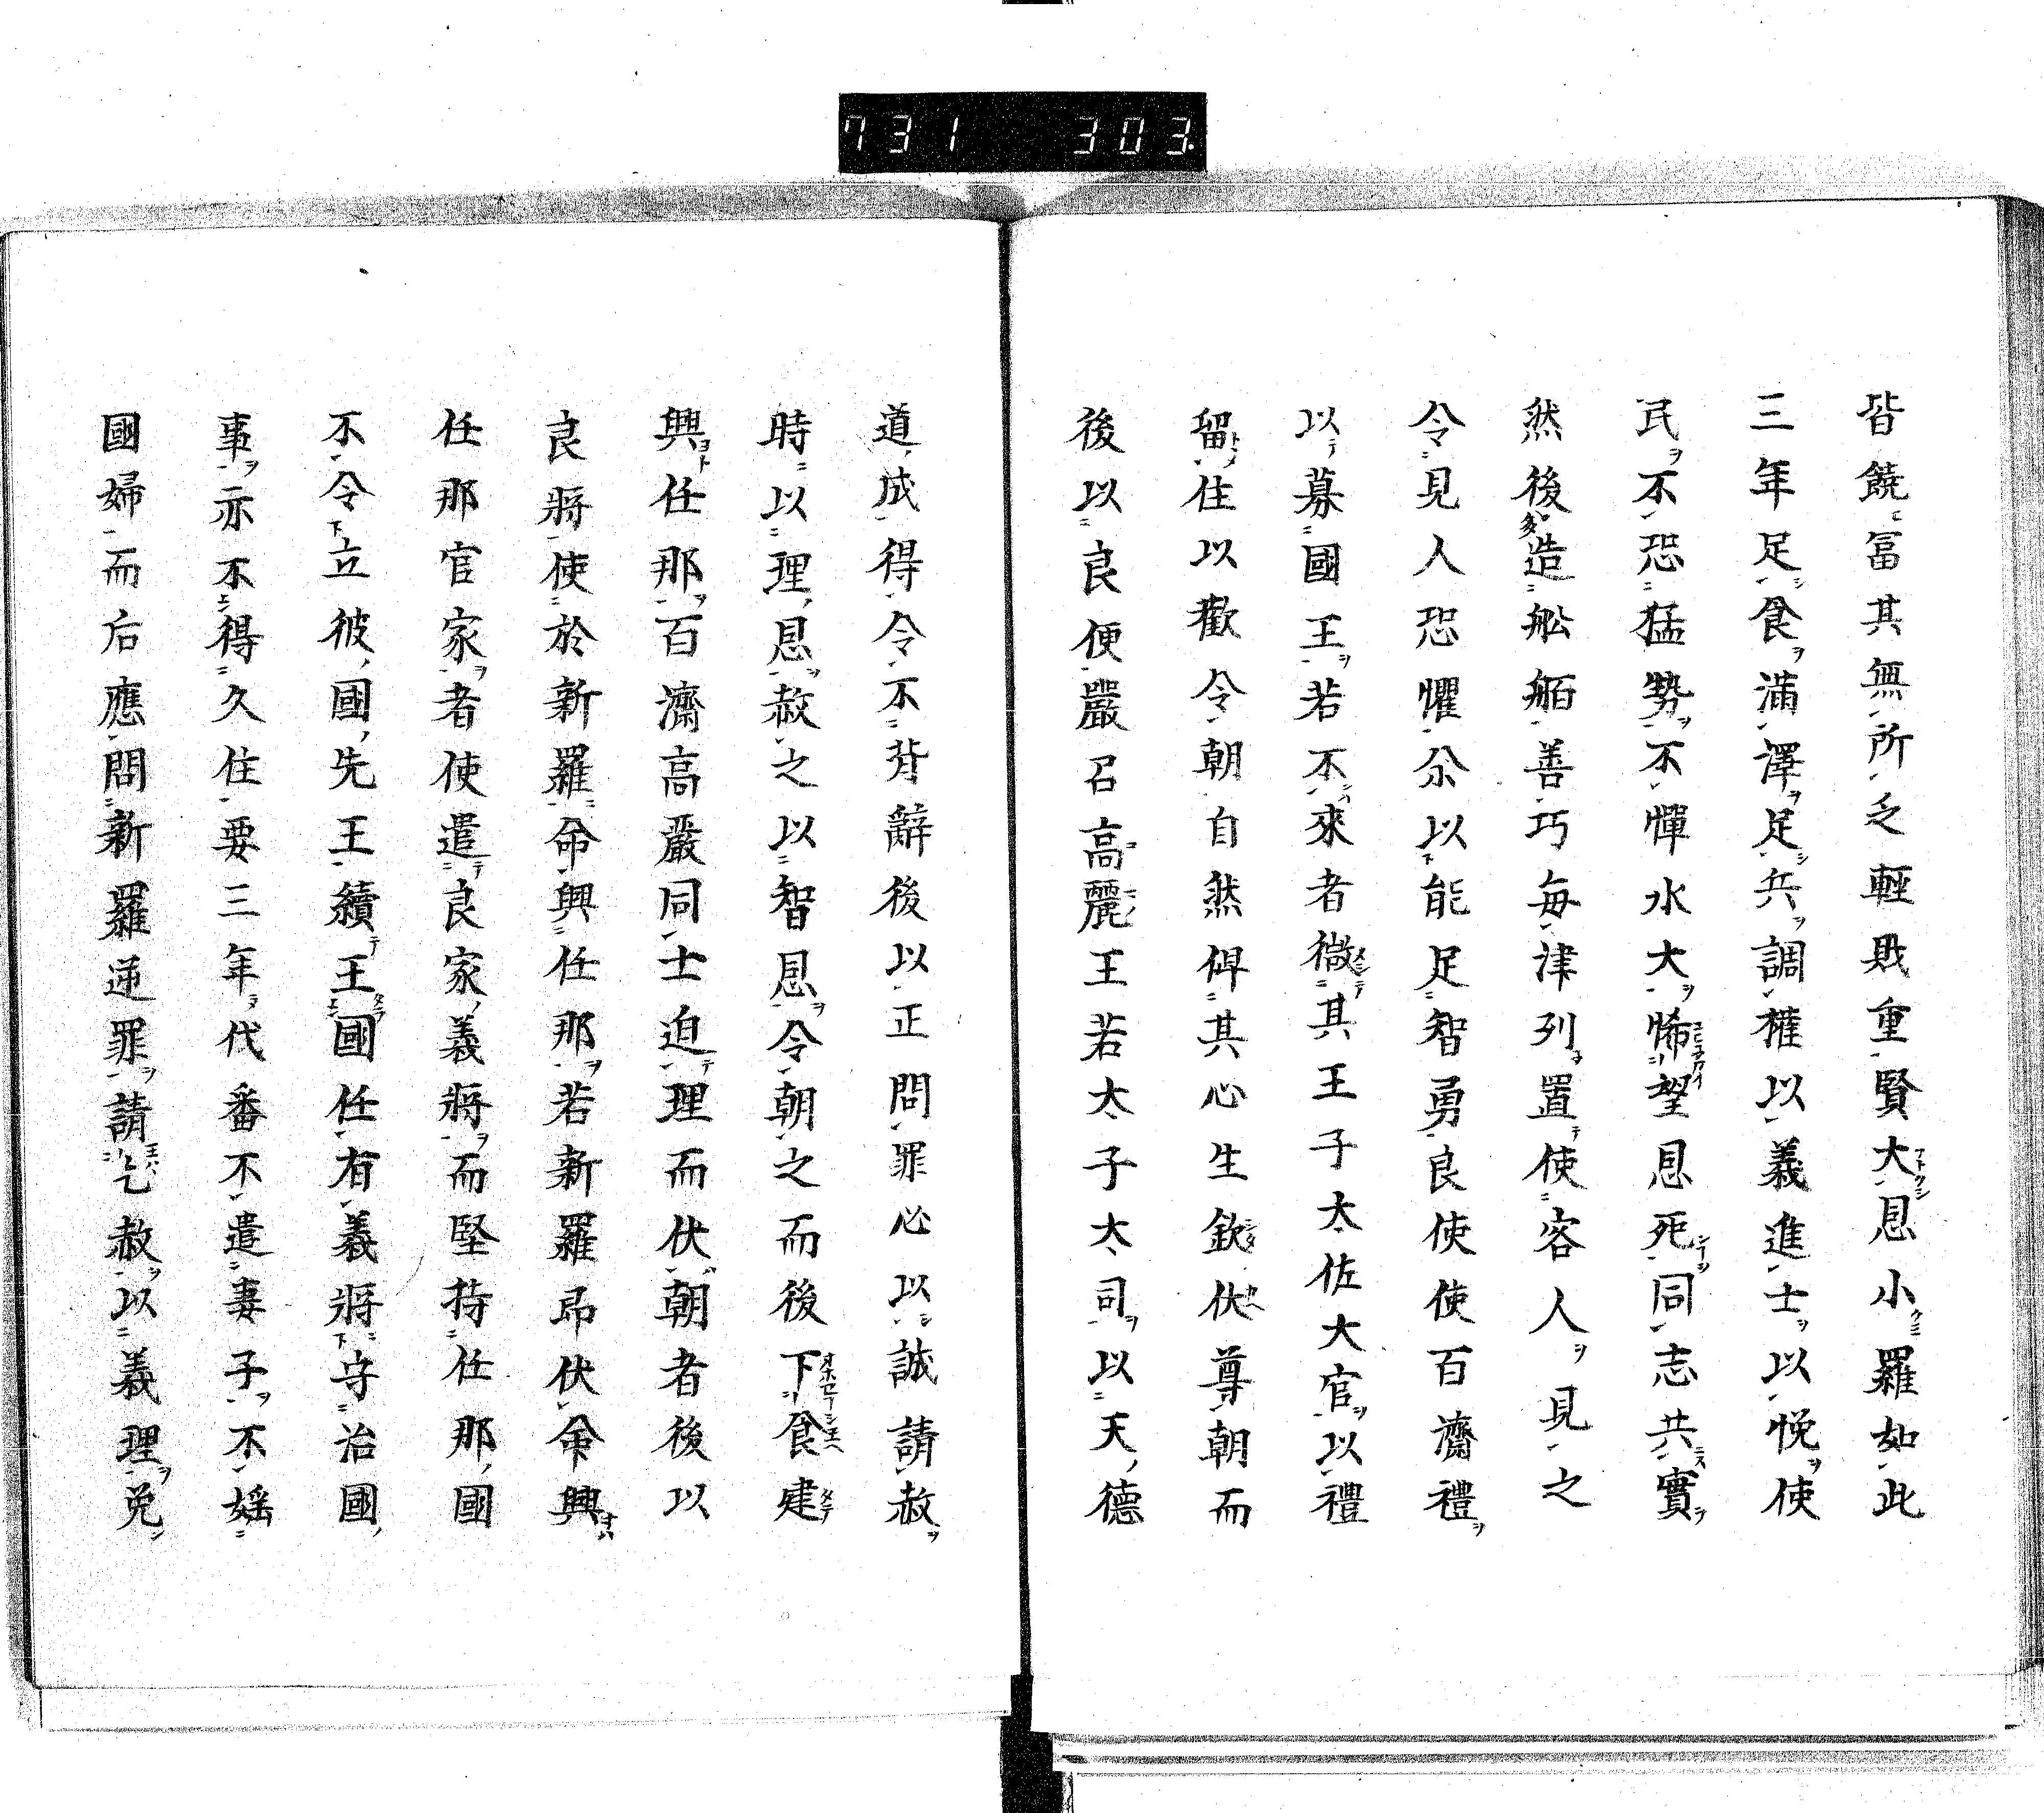 731 303
皆饒冨其無所乏輕財重賢大恩小羅如此
三年足食滿澤足兵調權以義進士以悅使
民不恐猛勢不憚水大悕望恩死同志共實
然後造舩舶善巧每津列置使客人見之
令見人恐懼尒以能足智勇良使使百濟禮
以募國王若不來者徵其王子太佐大官以禮
留住以歡令朝自然俾其心生欽伏尊朝而
後以良便嚴召高麗王若太子大司以天德
道成得令不背辭後以正問罪必以誠請赦
時以理恩赦之以智恩令朝之而後下食建
興任那百濟高嚴同士迫理而伏朝者後以
良將使於新羅命興任那若新羅昂伏命興
任那官家者使遣良家義將而堅持任那國
不令立彼國先王續王國任有義將守治國
事亦不得久住要三年代番不遣妻子不婬
國婦而后應問新羅逆罪請乞赦以義理兌